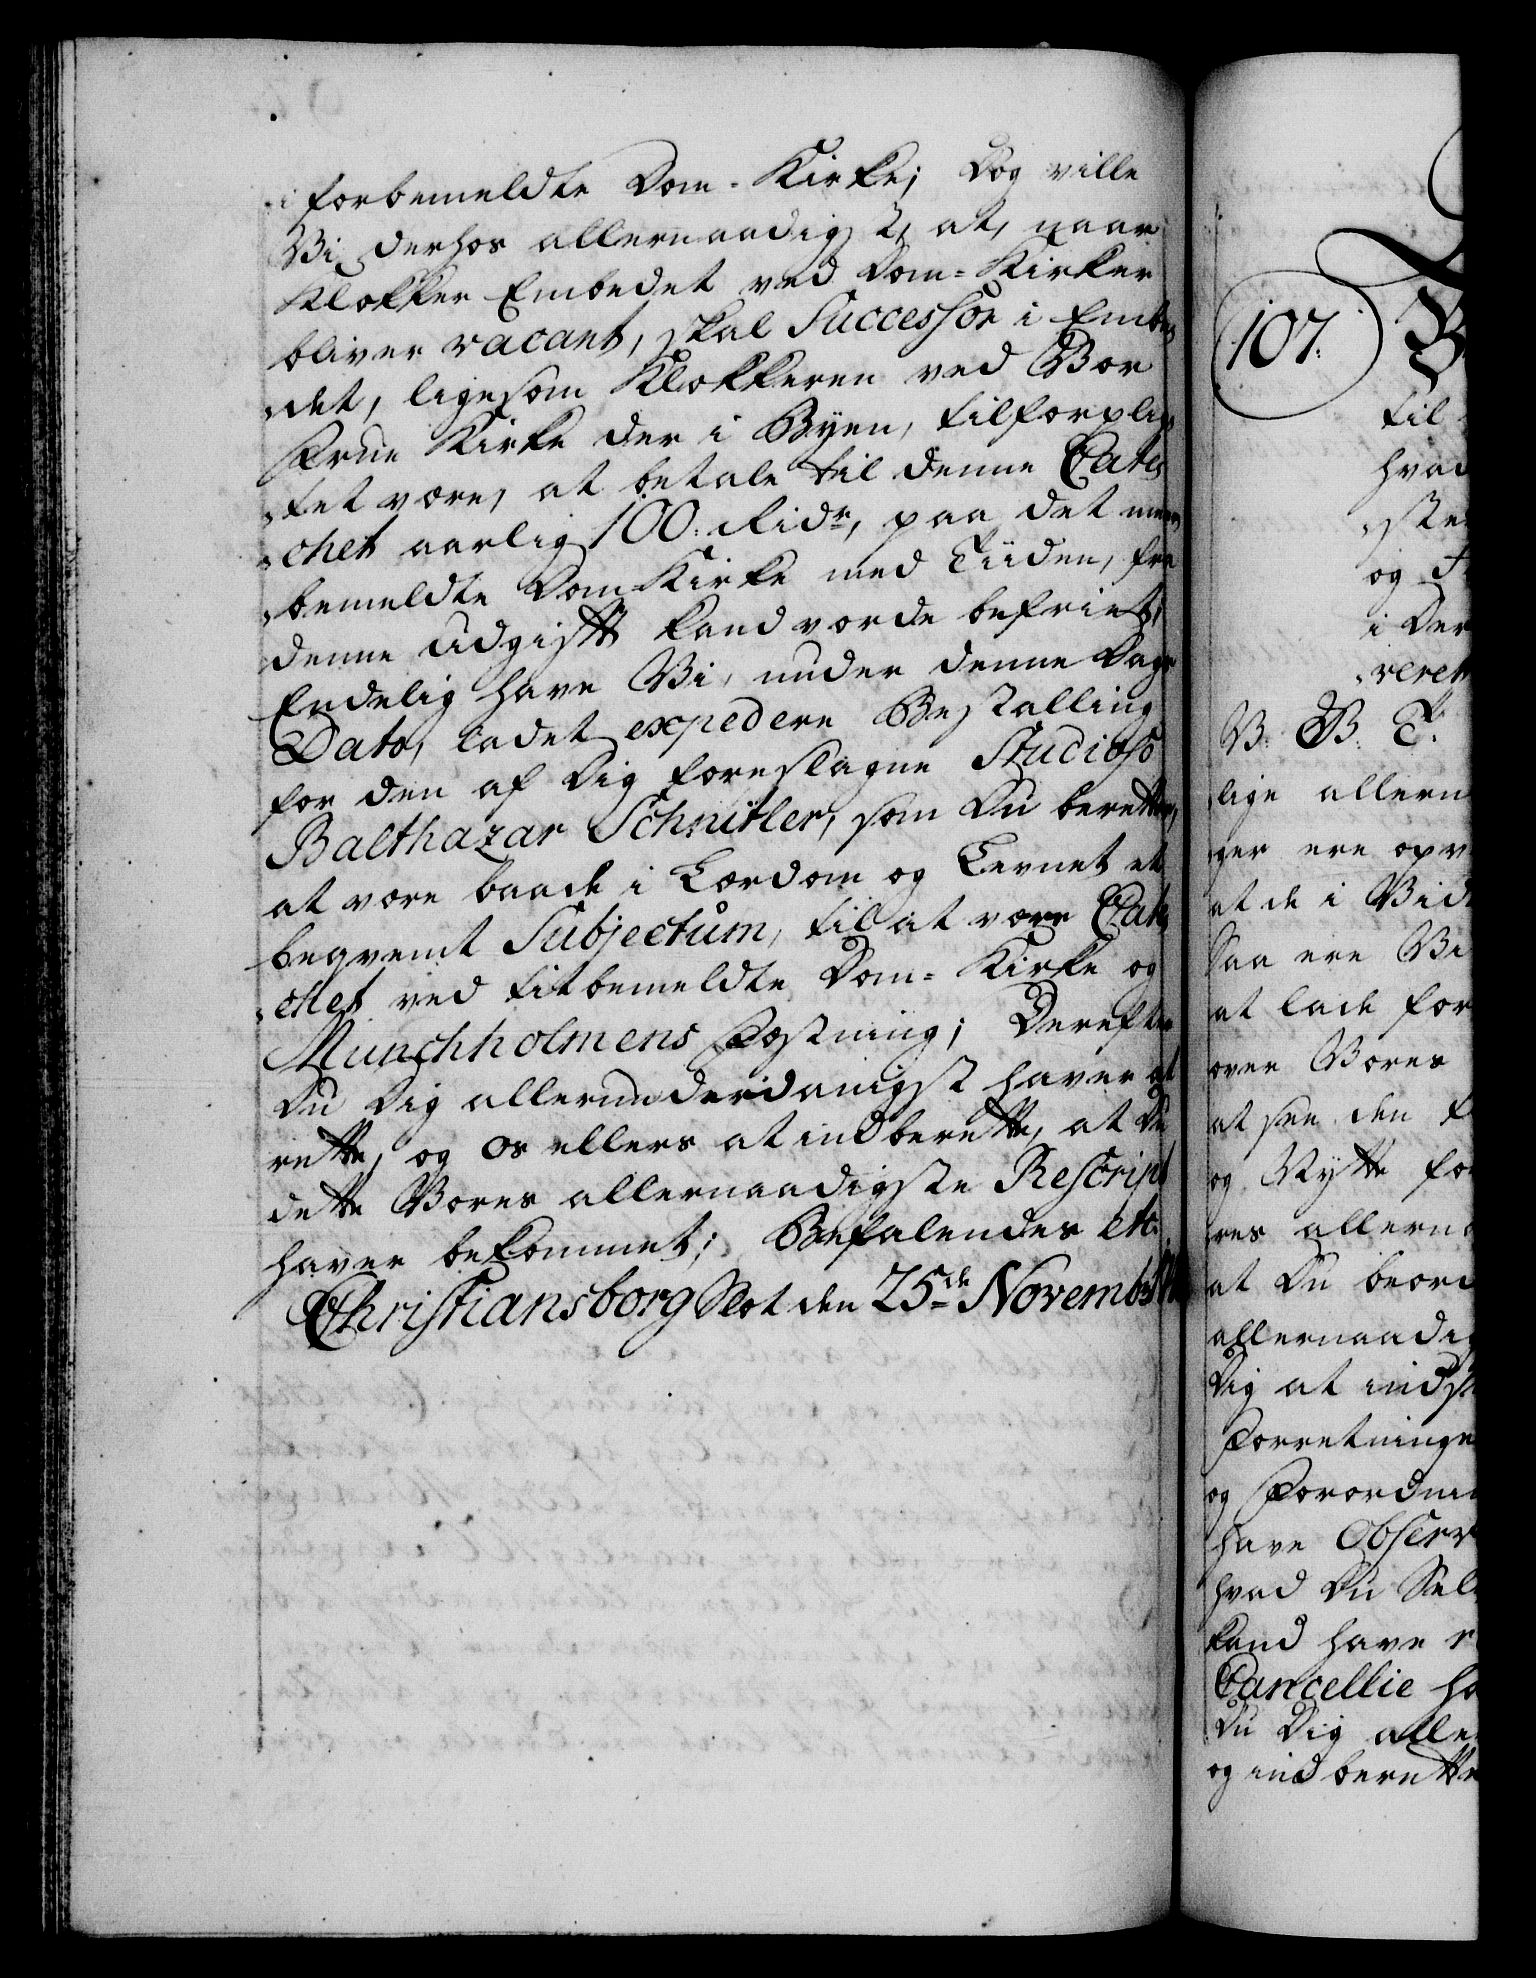 i forbemeldte Dom-Kirke; Dog ville
Vi derhos allernaadigst, at, naar
Klokker Embedet ved Dom-Kirken
bliver vacant, skal Successor i Embe„
„det, ligesom Klokkeren ved Vor
Frue Kirke der i Byen, tilforplig„
„tet være, at betale til denne Cate„
„chet aarlig 100: Ridr, paa det meer„
„bemeldte Dom-Kirke med Tiiden, fra
denne Udgift kand vorde befriet,
Endelig have Vi, under denne Dags
Dato, ladet expedere Bestalling
for den af Dig foreslagne Studioso
Balthazar Schnitler, som Du beretter,
at være baade i Lærdom og Levnet et
beqvemt Subjectum, til at være Cate„
„chet ved titbemeldte Dom-Kirke og
Munchholmens Fæstning; Derefter
Du Dig allerunderdanigst haver at
rette, og Os ellers at indberette, at Du
dette Vores allernaadigste Rescript
haver bekommet; Befalendes etc.
Christiansborg Slot den 25de Novembr
107.
til
hvad
og
i Der
V. G. T.
lige allern
ger ere opv
at de i Vid
Saa ere Vi
at lade for
over Vores
at see den
og Nytte for
res allerna
at Du beord
allernaadig
Dig at indst
Forretninge
og Forordni
have Observ
hvad Du Sel
kand have
Cancellie ha
Du Dig aller
og indberette